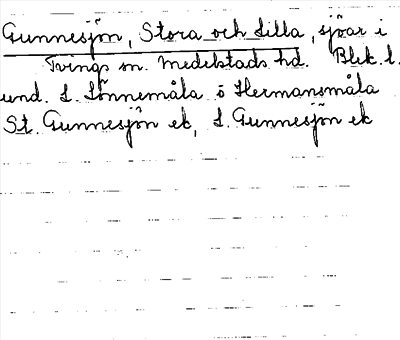 Gunnesjön, Stora och Lilla, sjöar i
Tvings sn. Medelstads hd. Blek. l.
und. L. Lönnemåla ö Hermansmåla
St. Gunnesjön ek, L. Gunnesjön ek